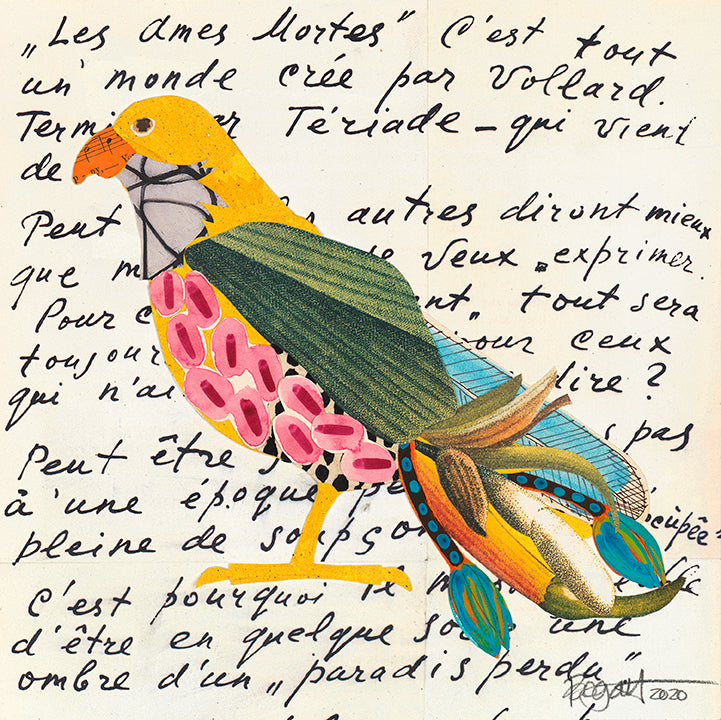 „Les âmes Mortes" C'est tout
un monde crée par Vollard.
Termi ar Tériade – qui vient
de
Peut autres diront mieux
que m veux „exprimer.
Pour c ent„ tout sera
toujour pour ceux
qui n'a dire ?
s pas
Peut être
à'une époque pe cùpée
pleine de soupço
C'est pourquoi il m
d'être en quelque so une
ombre d'un „paradis perdu„
2020